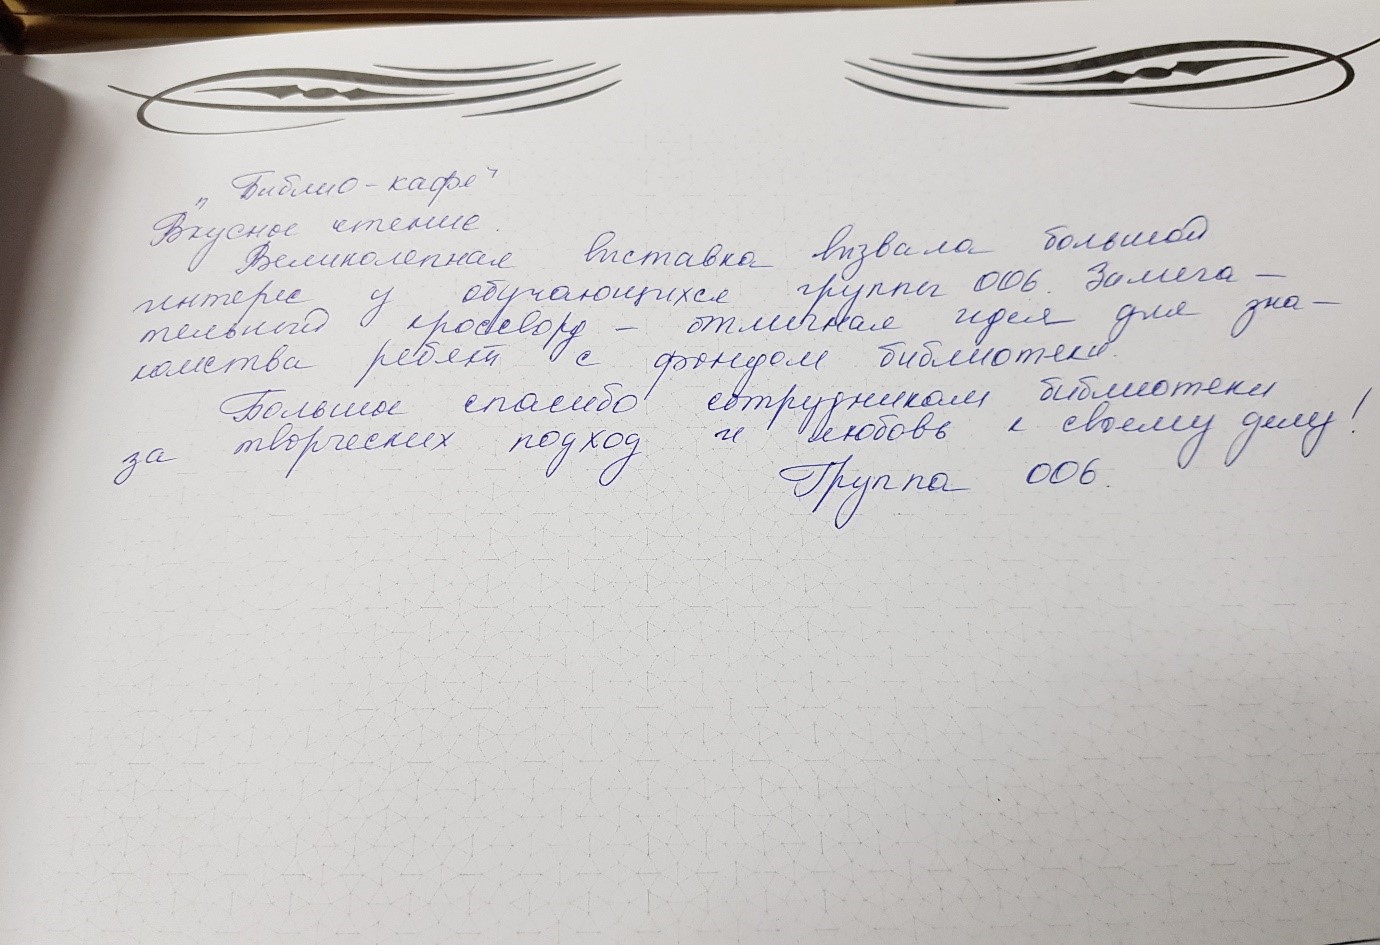 „Библио-кафе"
Вкусное чтение.
Великолепная выставка вызвала большой
интерес у обучающихся группы 006. Замеча-
тельный кроссворд - отличная идея для зна-
комства ребят с фондом библиотеки.
Большое спасибо сотрудникам библиотеки
за творческих подход и любовь к своему делу!
Группа 006.